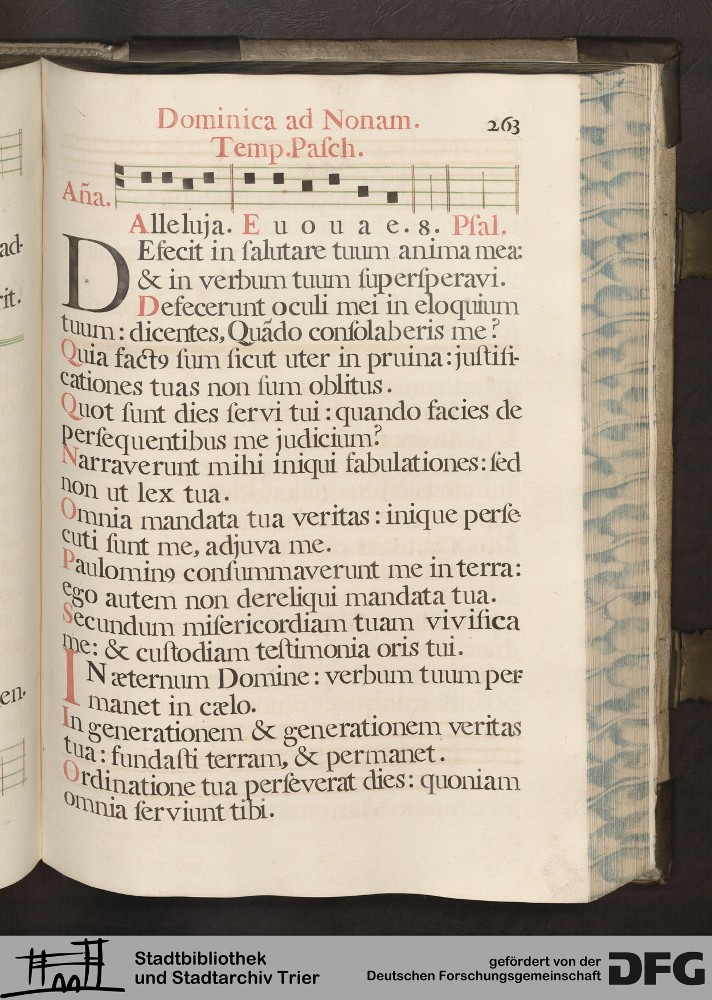 Dominica ad Nonam.
263
Temp.Paſch.
Aña.
Alleluja. E u o u a e. 8. Pſal.
DEfecit in ſalutare tuum anima mea:
& in verbum tuum ſuperſperavi.
Defecerunt oculi mei in eloquium
tuum: dicentes, Quãdo conſolaberis me?
Quia factꝰ ſum ſicut uter in pruina: juſtifi-
cationes tuas non ſum oblitus.
Quot ſunt dies ſervi tui: quando facies de
perſequentibus me judicium?
Narraverunt mihi iniqui fabulationes: ſed
non ut lex tua.
Omnia mandata tua veritas: inique perſe
cuti ſunt me, adjuva me.
Paulominꝰ conſummaverunt me in terra:
ego autem non dereliqui mandata tua.
Secundum miſericordiam tuam vivifica
me: & cuſtodiam teſtimonia oris tui.
INæternum Domine: verbum tuum per-
manet in cælo.
In generationem & generationem veritas
tua: fundaſti terram, & permanet.
Ordinatione tua perſeverat dies: quoniam
omnia ſerviunt tibi.
ad-
rit.
en.
Stadtbibliothek
und Stadtarchiv Trier
gefördert von der
Deutschen Forschungsgemeinschaft
DFG